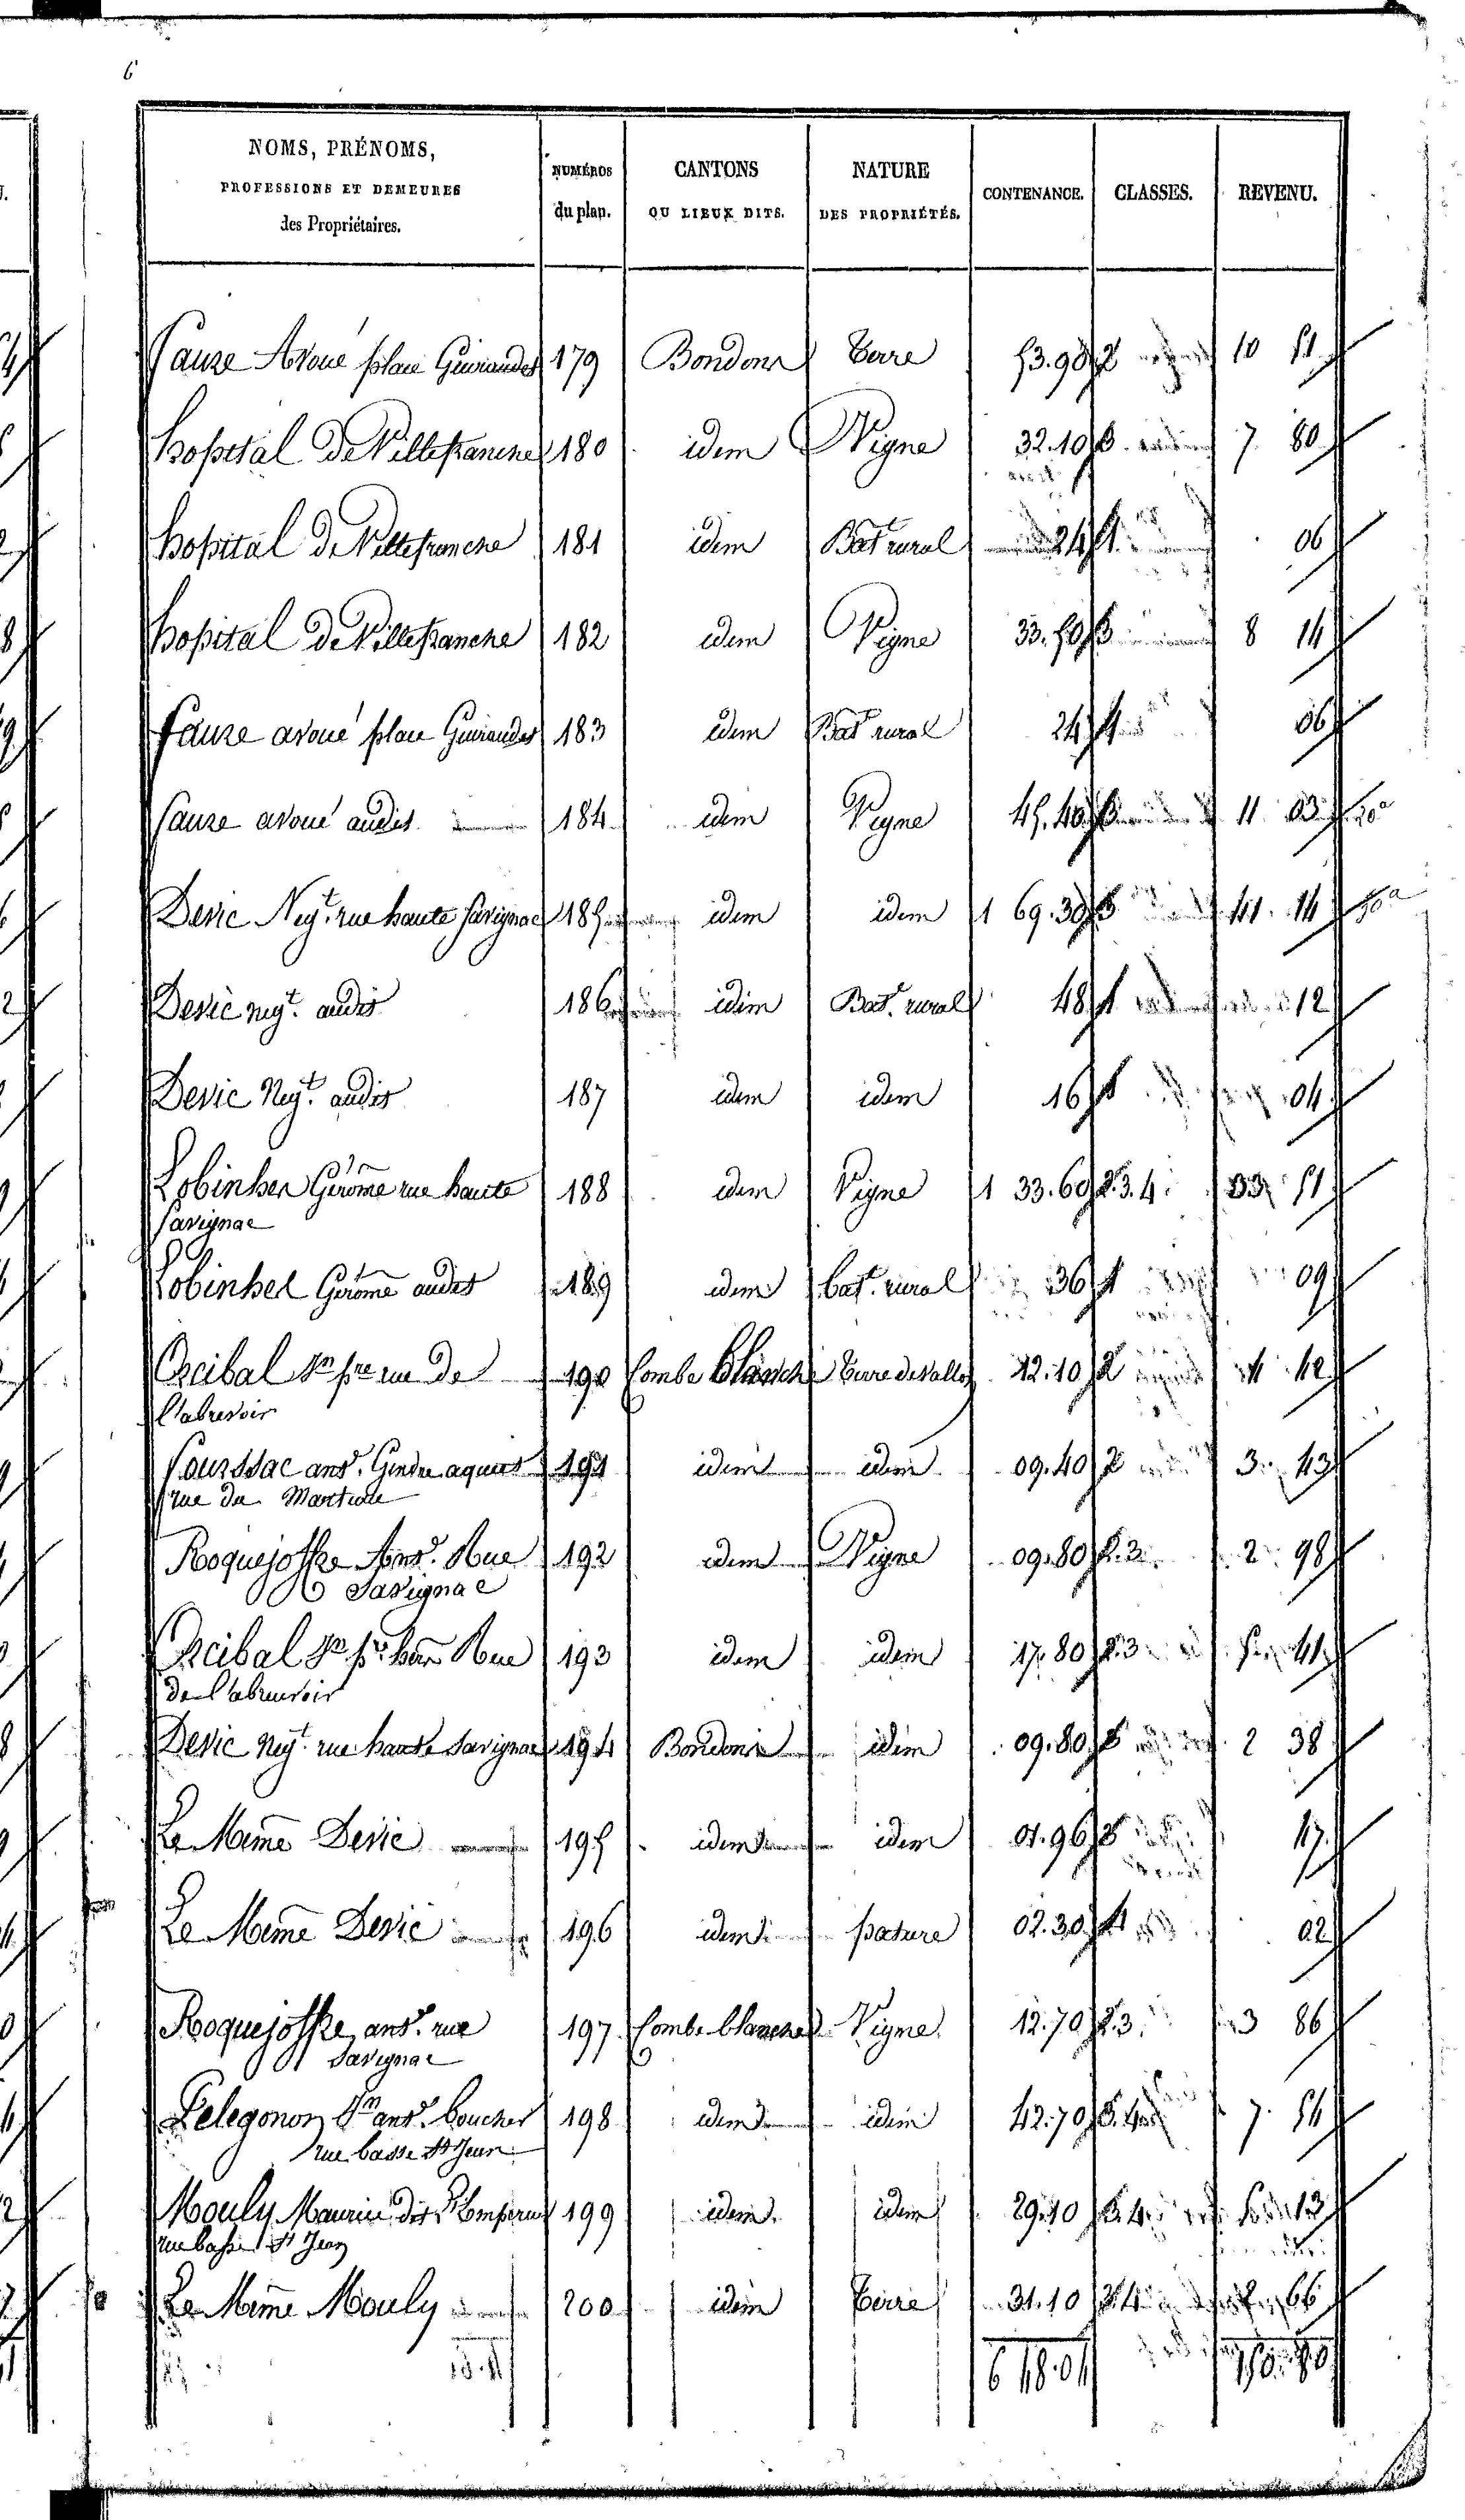 6
NOMS, PRÉNOMS,
PROFESSIONS ET DEMEURES
des Propriétaires.
NUMÉROS
du plan.
CANTONS
OU LIEUX DITS.
NATURE
DES PROPRIÉTÉS.
CONTENANCE.
CLASSES.
REVENU.
Cauze Avoué place Guiraudet 179 Bondons Terre 53.90 2 10 51
hopital De Villefranche 180 idem Vigne 32.10 3 7 80
hopital De Villefranche 181 idem Bat rural 24 1 06
hopital De Villefranche 182 idem Vigne 33.50 3 8 14
Cauze avoué place Guiraudet 183 idem Bat rural 24 1 06
Cauze avoué audit 184 idem Vigne 45.40 3 11 03
Devic Negt. rue haute Savignac 185 idem idem 1 69.30 3 41 14
Devic negt. audit 186 idem Bat. rural 48 1 12
Devic Negt. audit 187 idem idem 16 1 04
Lobinhes Gérome rue haute 188 idem Vigne 1 33.60 2.3.4 33 51
Savignac
Lobinhes Gérome audit 189 idem bat. rural 36 1 09
Cabal rue De 190 Combe blanche Terre 12.10 2 4 42
l'abrevoir
Coussac ant. Gendre 191 idem idem 09.40 2 3 43
rue du
Roquejoffre Ant. Rue 192 idem Vigne 09.80 2.3 2 98
Savignac
Cabal Rue 193 idem idem 17.80 2.3 5 41
de l'abreuvoir
Devic Negt. rue haute Savignac 194 Bondons idem 09.80 3 2 38
Le Meme Devic 195 idem idem 01.96 3 47
Le Meme Devic 196 idem pature 02.30 4 02
Roquejoffre, ant. rue 197 Combe blanche Vigne 12.70 2.3 3 86
Savignac
Pelegonon ant. boucher 198 idem idem 42.70 3.4 7 54
rue basse St Jean
Mouly Maurice dit 199 idem idem 29.10 3.4 5 13
rue basse St Jean
Le Meme Mouly 200 idem Terre 31.10 3.4 66
6 48.01